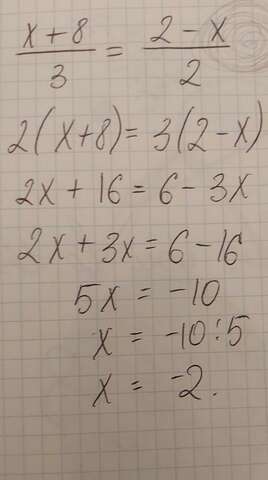 x+8/3 = 2-x/2
2(x+8)=3(2-x)
2x+16=6-3x
2x+3x=6-16
5x=-10
x=-10:5
x=-2.